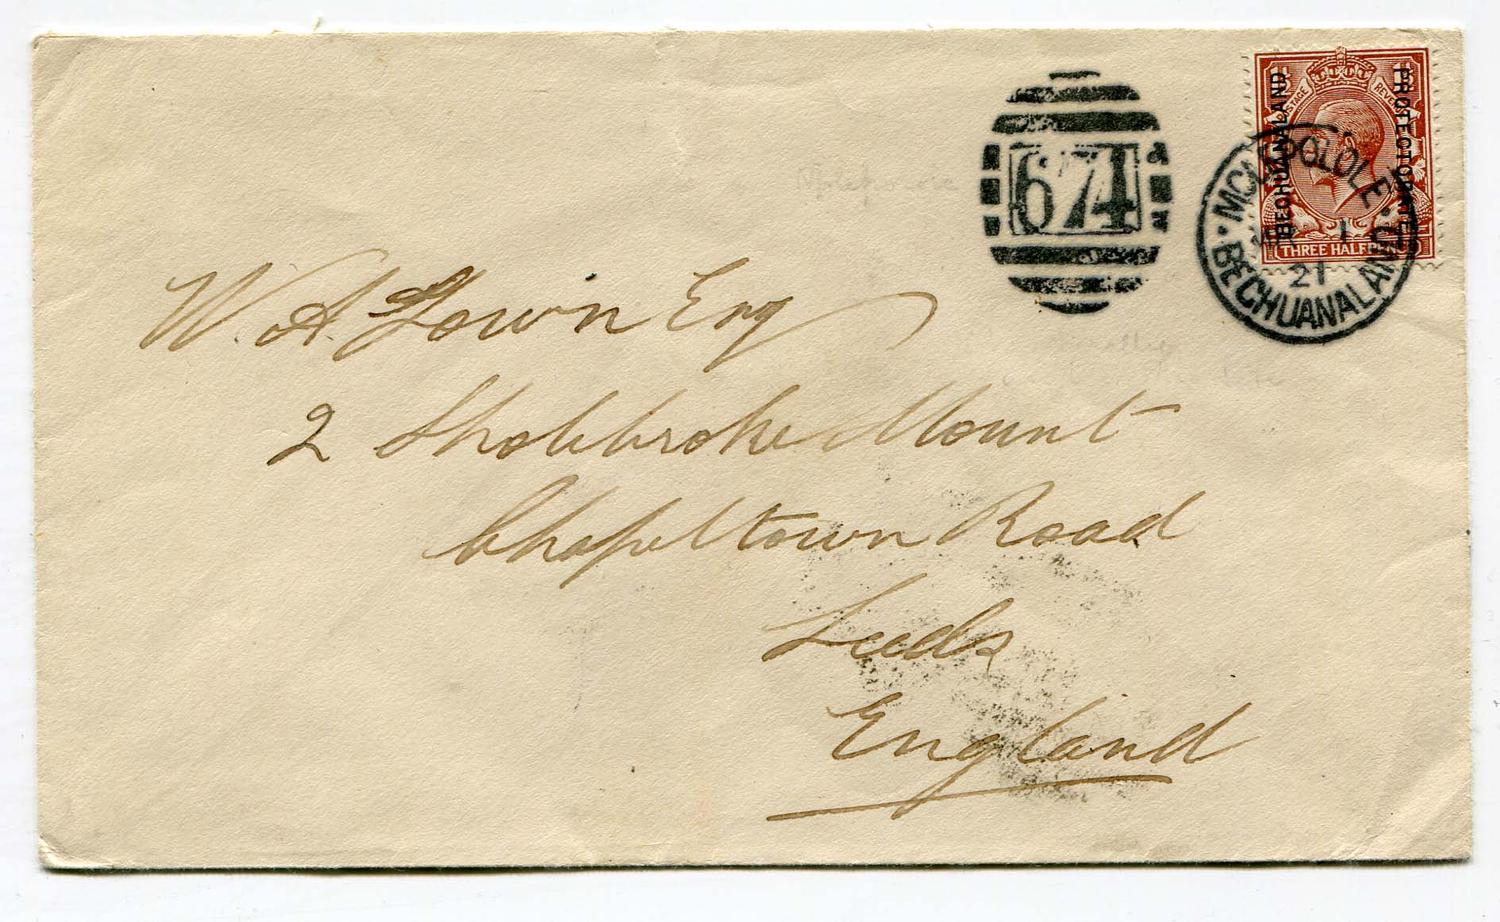 674
POSTAGE REVENUE
BECHUANALAND
PROTECTORATE
THREE HALF
BECHUANALAND
21
W. A. Gowin Esq
2 Sholebroke Mount
Chapeltown Road
Leeds
England